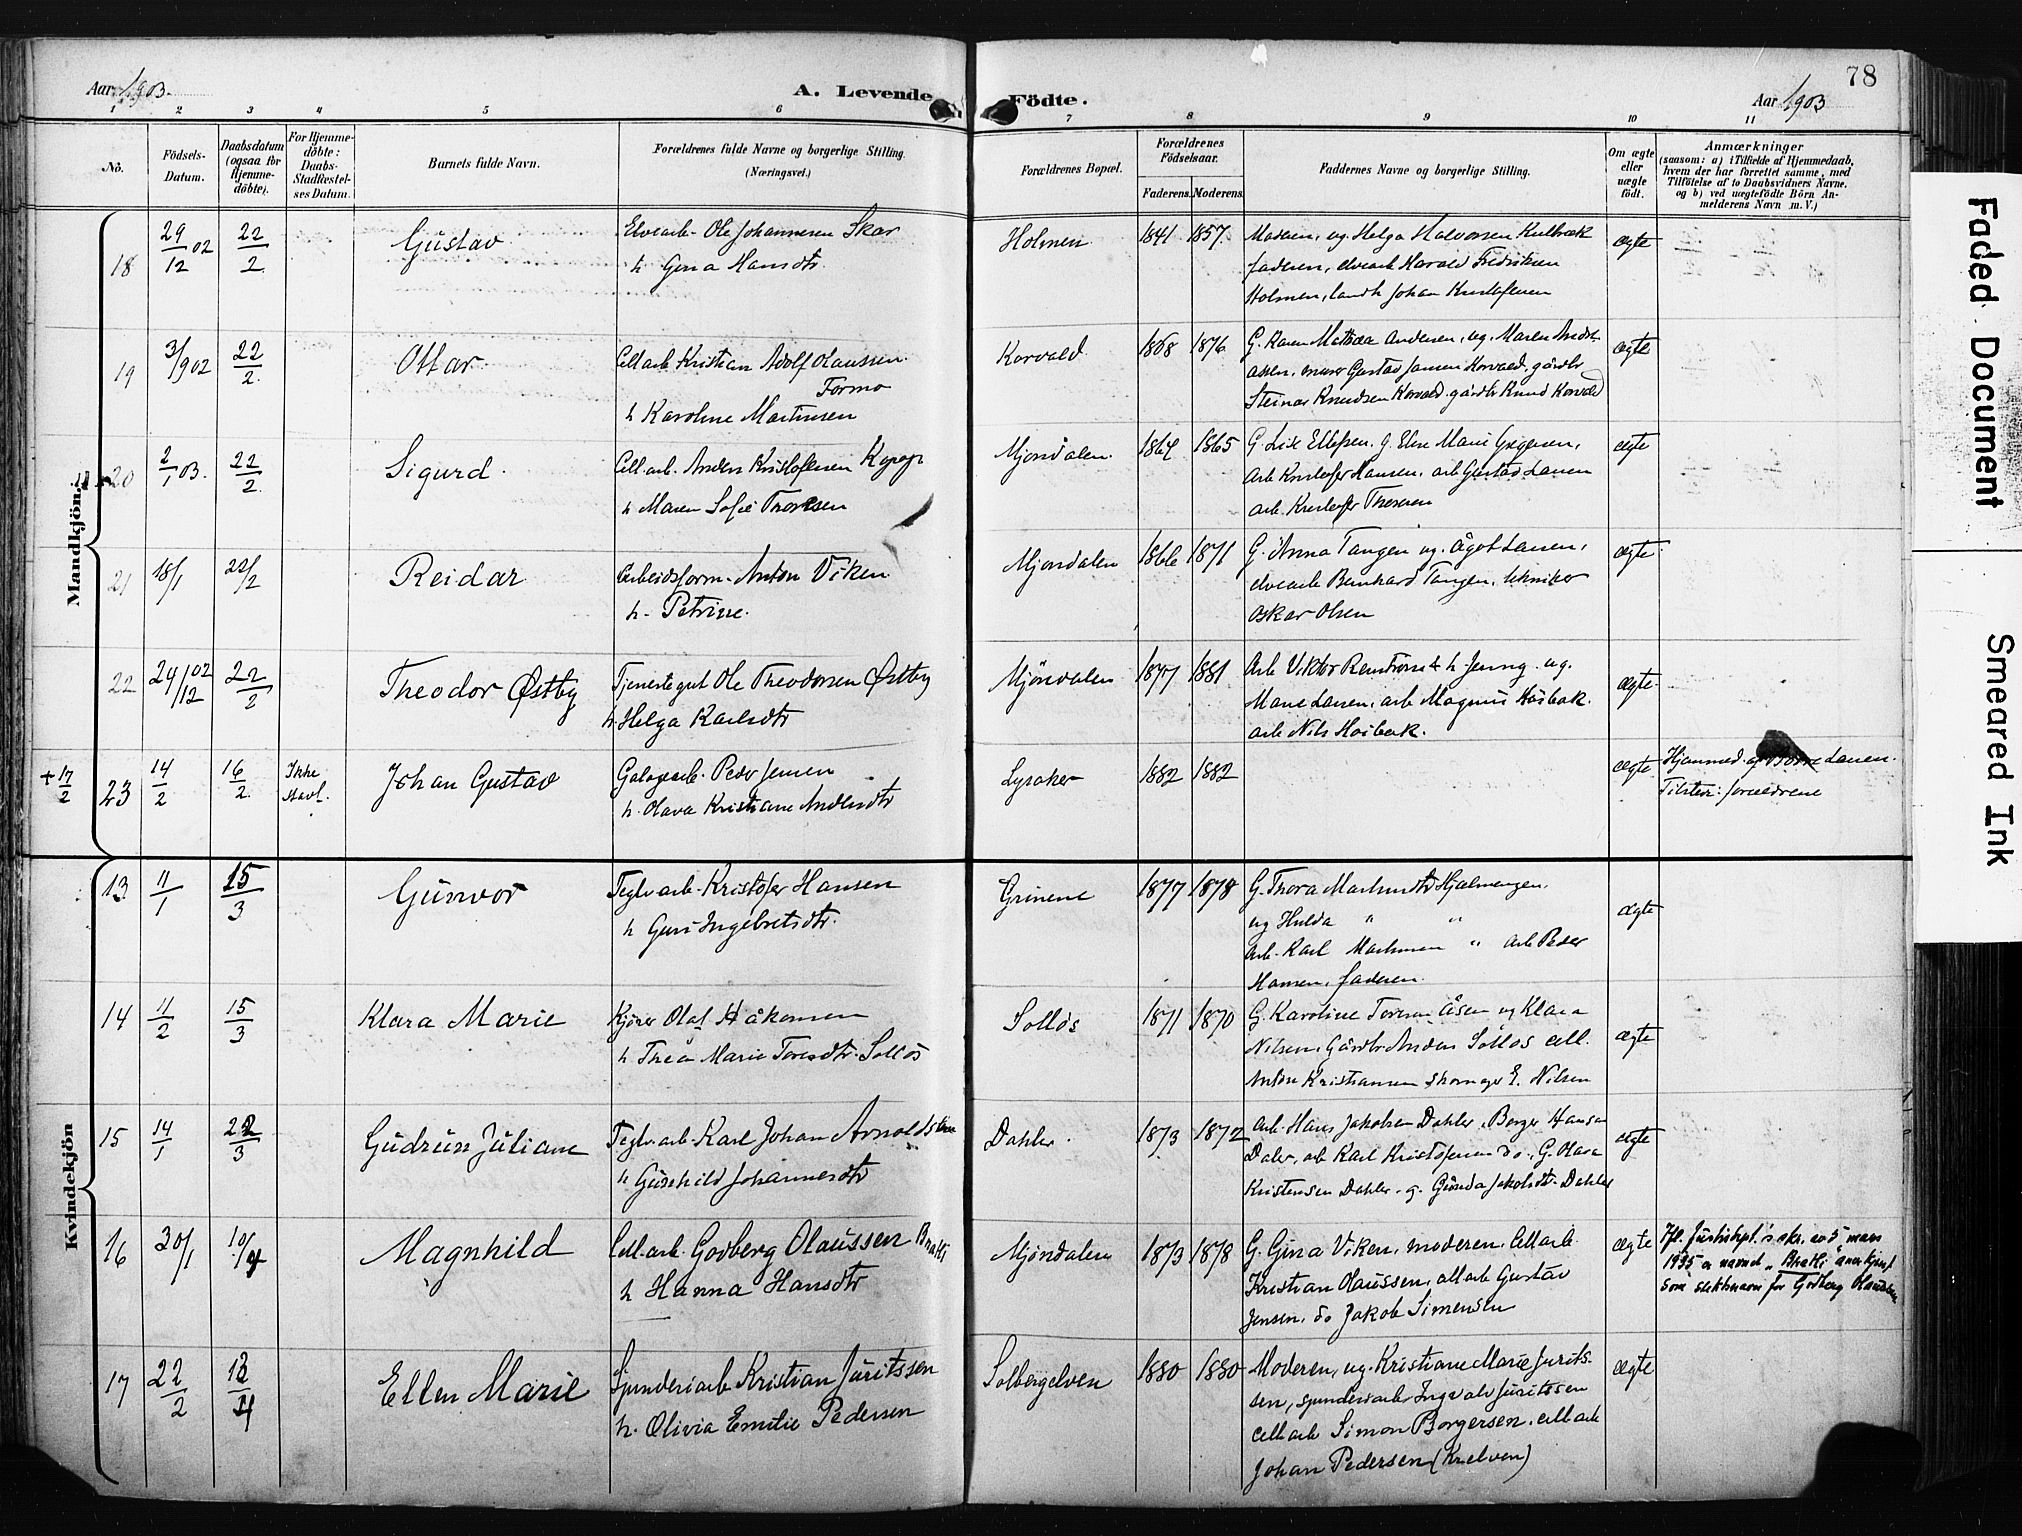 78
Aar 1903.
A. Levende Födte.
Aar 1903
1 2 3 4 5 6 7 8 9 10 11
No.
Födsels-Datum.
Daabsdatum (ogsaa for Hjemmedöbte).
For Hjemmedöbte: Daabs-Stadfæstelses Datum.
Barnets fulde Navn.
Forældrenes fulde Navne og borgerlige Stilling.
(Næringsvei.)
Forældrenes Bopæl.
Forældrenes Födselsaar.
Faderens. Moderens.
Faddernes Navne og borgerlige Stilling.
Om ægte eller uægte födt.
Anmærkninger
(saasom: a) i Tilfælde af Hjemmedaab,
hvem der har forrettet samme, med
Tilföielse af to Daabsvidners Navne,
og b) ved uægtefödte Börn Anmelderens Navn m. V.)
Mandkjön.
18 29/12 02 22/2 Gustav
Elvearb. Ole Johannesen Skar
h. Gina Hansdtr.
Holmen 1841 1857
Moderen, ug. Helga Halvorsen
faderen, elvearb Harald Fredriksen
Holmen, Johan Kristofersen
ægte
19 3/9 02 22/2 Ottar
Cell.arb Kristian Adolf Olaussen
Formo
h Karoline Martinsen
Korvald 1868 1876
G. Karen Mathea Andersen, ug. Maren
murer Gustav Jensen Korvald, gårdbr
Steinar Knudsen Korvald. gårdbr Knud Korvald
ægte
20 2/1 03. 22/2 Sigurd
Cell.arb. Anders Kristofersen
h Maren Sofie Thoresen
Mjöndalen 1864 1865
G. Lise Ellefsen. g. Else Marie
Arb Kristofer Hansen. arb Gustav Larsen
arb. Kristofer Thoresen
ægte
21 18/1 22/2 Reidar
Arbeidsform. Anton Viken
h. Petrine.
Mjöndalen 1866 1871
G. Anna Tangen ug. Ågot Larsen,
elvearb Bernhard Tangen, tekniker
Oskar Olsen
ægte
22 24/12 02 22/2 Theodor Østby
Tjenestegut Ole Theodorsen Østby
h. Helga Karlsdtr
Mjöndalen 1877 1881
Arb Viktor h. Jenny. ug.
Marie Larsen, arb Magnus Hosbak.
arb Nils Hosbak.
ægte.
+ 17/2 23 14/2 16/2 Ikke stadf. Johan Gustav
Peder Jensen
h. Olava Kristiane Andersdtr
Lysaker 1882 1882
ægte
Hjemmed. af Larsen.
Tilstede: forældrene
Kvindekjön
13 11/1 15/3 Gunvor
Teglv.arb. Kristofer Hansen
h Guri Ingebretsdtr.
Grinene 1877 1878
G. Thora Hjalmengen.
ug Hulda " "
arb. Karl " arb Peder
Hansen. faderen.
ægte
14 11/2 15/3 Klara Marie
Kjörer Olaf Håkonsen
h Thea Marie Toresdtr. Sollös
Sollös 1871 1870
G. Karoline Toresen Åsen ug Klara
Nilsen, Gårdbr Anders Sollos cell.
Anton Kristiansen skomager E. Nilsen
ægte
15 14/1 22/3 Gudrun Juliane
Teglv.arb Karl Johan Arnoldsen
h Gunhild Johannesdtr
Dahler. 1873 1872
arb. Hans Jakobsen Dahler, Borger Hansen
Daler, arb Karl Kristofersen do, G. Olava
Kristensen Dahler. g. Gunda Jakobsdtr. Dahler
ægte
16 30/1 10/4 Magnhild
Cell.arb. Godberg Olaussen Bratli
h Hanna Hansdtr
Mjöndalen 1873 1878
G. Gina Viken, moderen. Cellarb.
Kristian Olaussen, cellarb Gustav
Jensen. do Jakob Simensen
ægte
Ifl. Justisdpt.s skr. av 5 mars
1935 er navnet „Bratli" anerkjent
som slektsnavn for Godberg Olaussen
17 22/2 13/4 Ellen Marie
Spunderiarb Kristian Juritssen
h. Olivia Emilie Pedersen
Solbergelven 1880 1880
Moderen, ug. Kristiane Marie Jurits-
sen, spunderiarb Ingvald Juritssen
cellarb Simon Borgersen. cellarb
Johan Pedersen (Krelven)
ægte
Faded Document
Smeared Ink